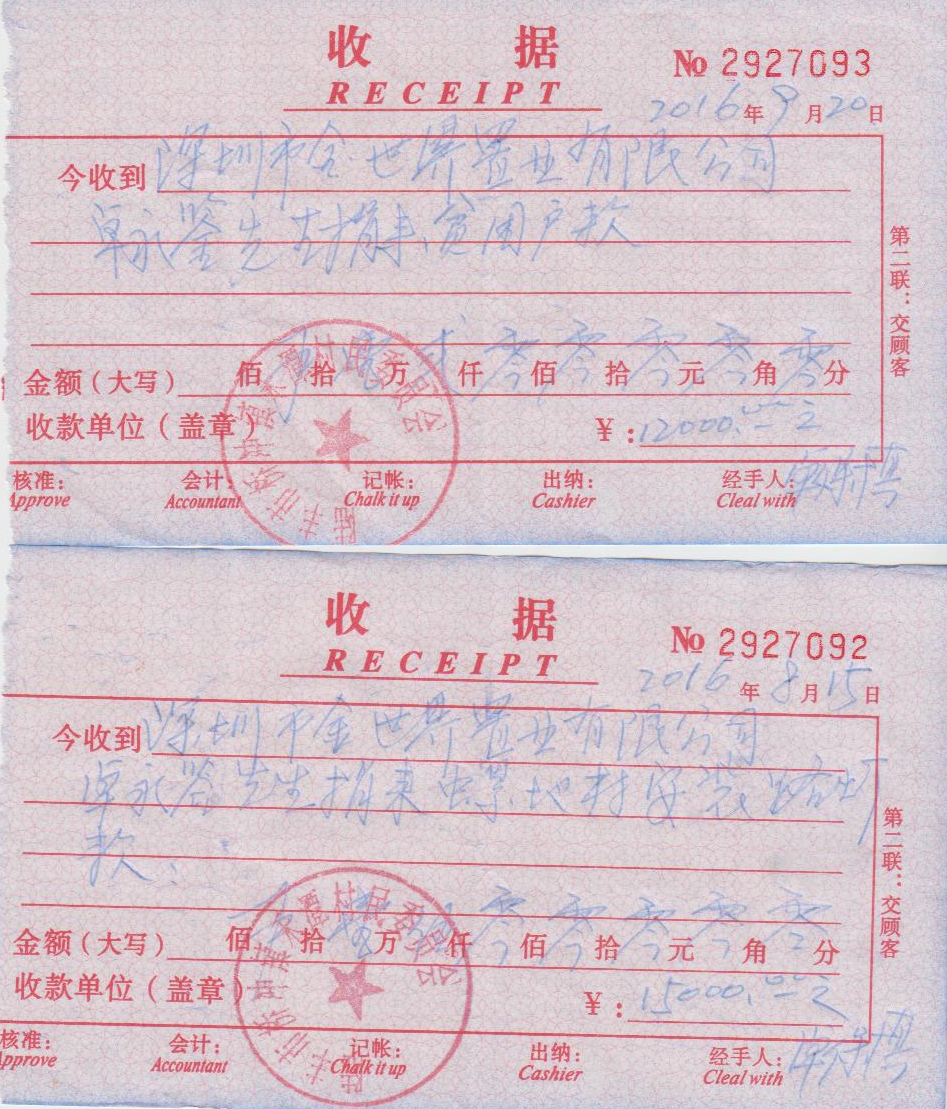 收 据
№ 2927093
RECEIPT
2016年9月20日
今收到 深圳市金世界置业有限公司
卓永鉴先生捐来贫困户款
第二联：交顾客
金额（大写） 佰 拾 壹万 贰仟 零佰 零拾 零元 零角 零分
收款单位（盖章） ￥：12000.00元
核准： 会计： 记帐： 出纳： 经手人：
Approve Accountant Chalk it up Cashier Cleal with
收 据
№ 2927092
RECEIPT
2016年8月15日
今收到 深圳市金世界置业有限公司
卓永鉴先生捐来 地村安装路灯
款．
第二联：交顾客
金额（大写） 佰 拾 壹万 伍仟 零佰 零拾 零元 零角 零分
收款单位（盖章） ￥：15000.00元
核准： 会计： 记帐： 出纳： 经手人：
Approve Accountant Chalk it up Cashier Cleal with